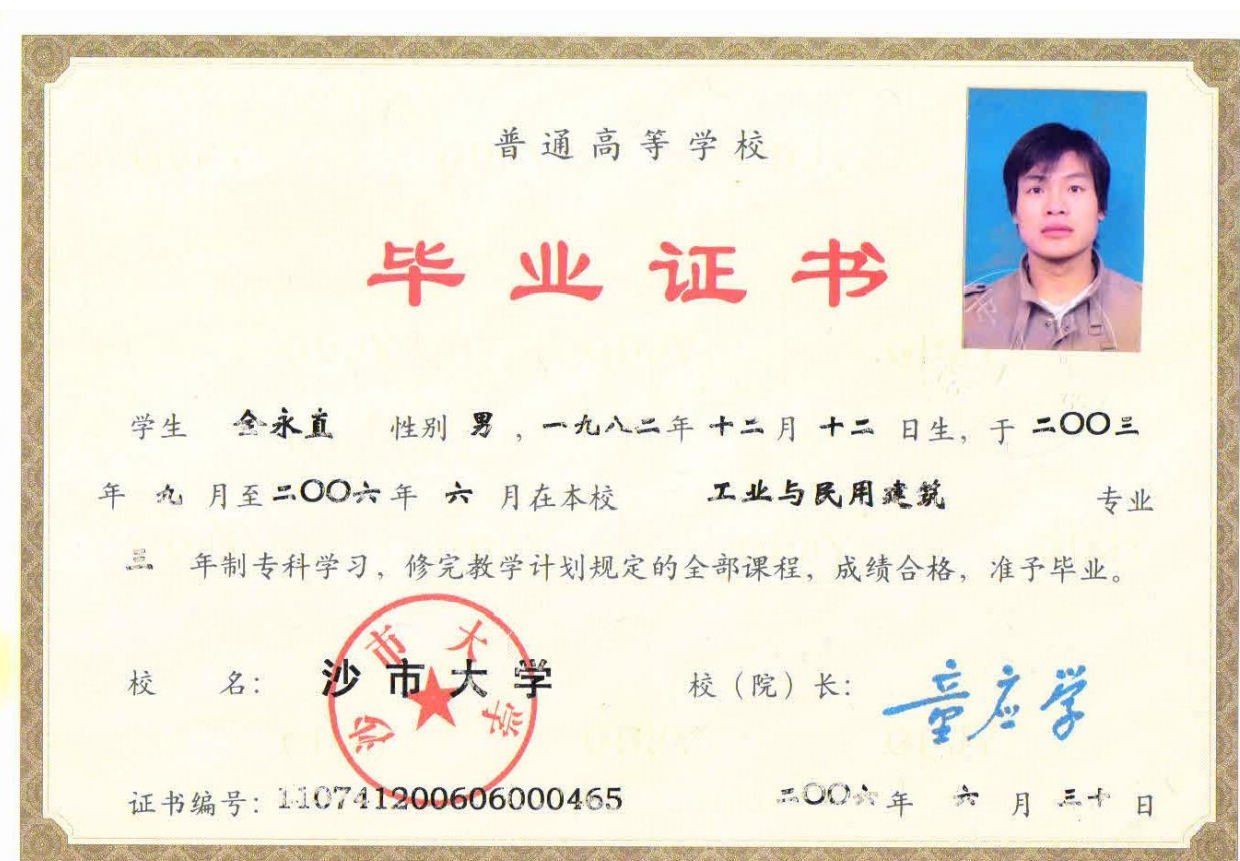 普通高等学校
毕业证书
学生 金永直 性别 男 , 一九八二年 十二月 十二 日生, 于 二〇〇三
年 九 月至二〇〇六年 六 月在本校 工业与民用建筑 专业
三 年制专科学习, 修完教学计划规定的全部课程, 成绩合格, 准予毕业。
校 名: 沙市大学 校（院）长: 童应学
沙市大学
证书编号: 110741200606000465 二〇〇六年 六 月 三十 日